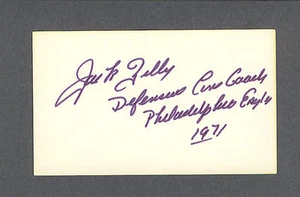 Jack Zilly
Defensive Line Coach
Philadelphia Eagles
1971